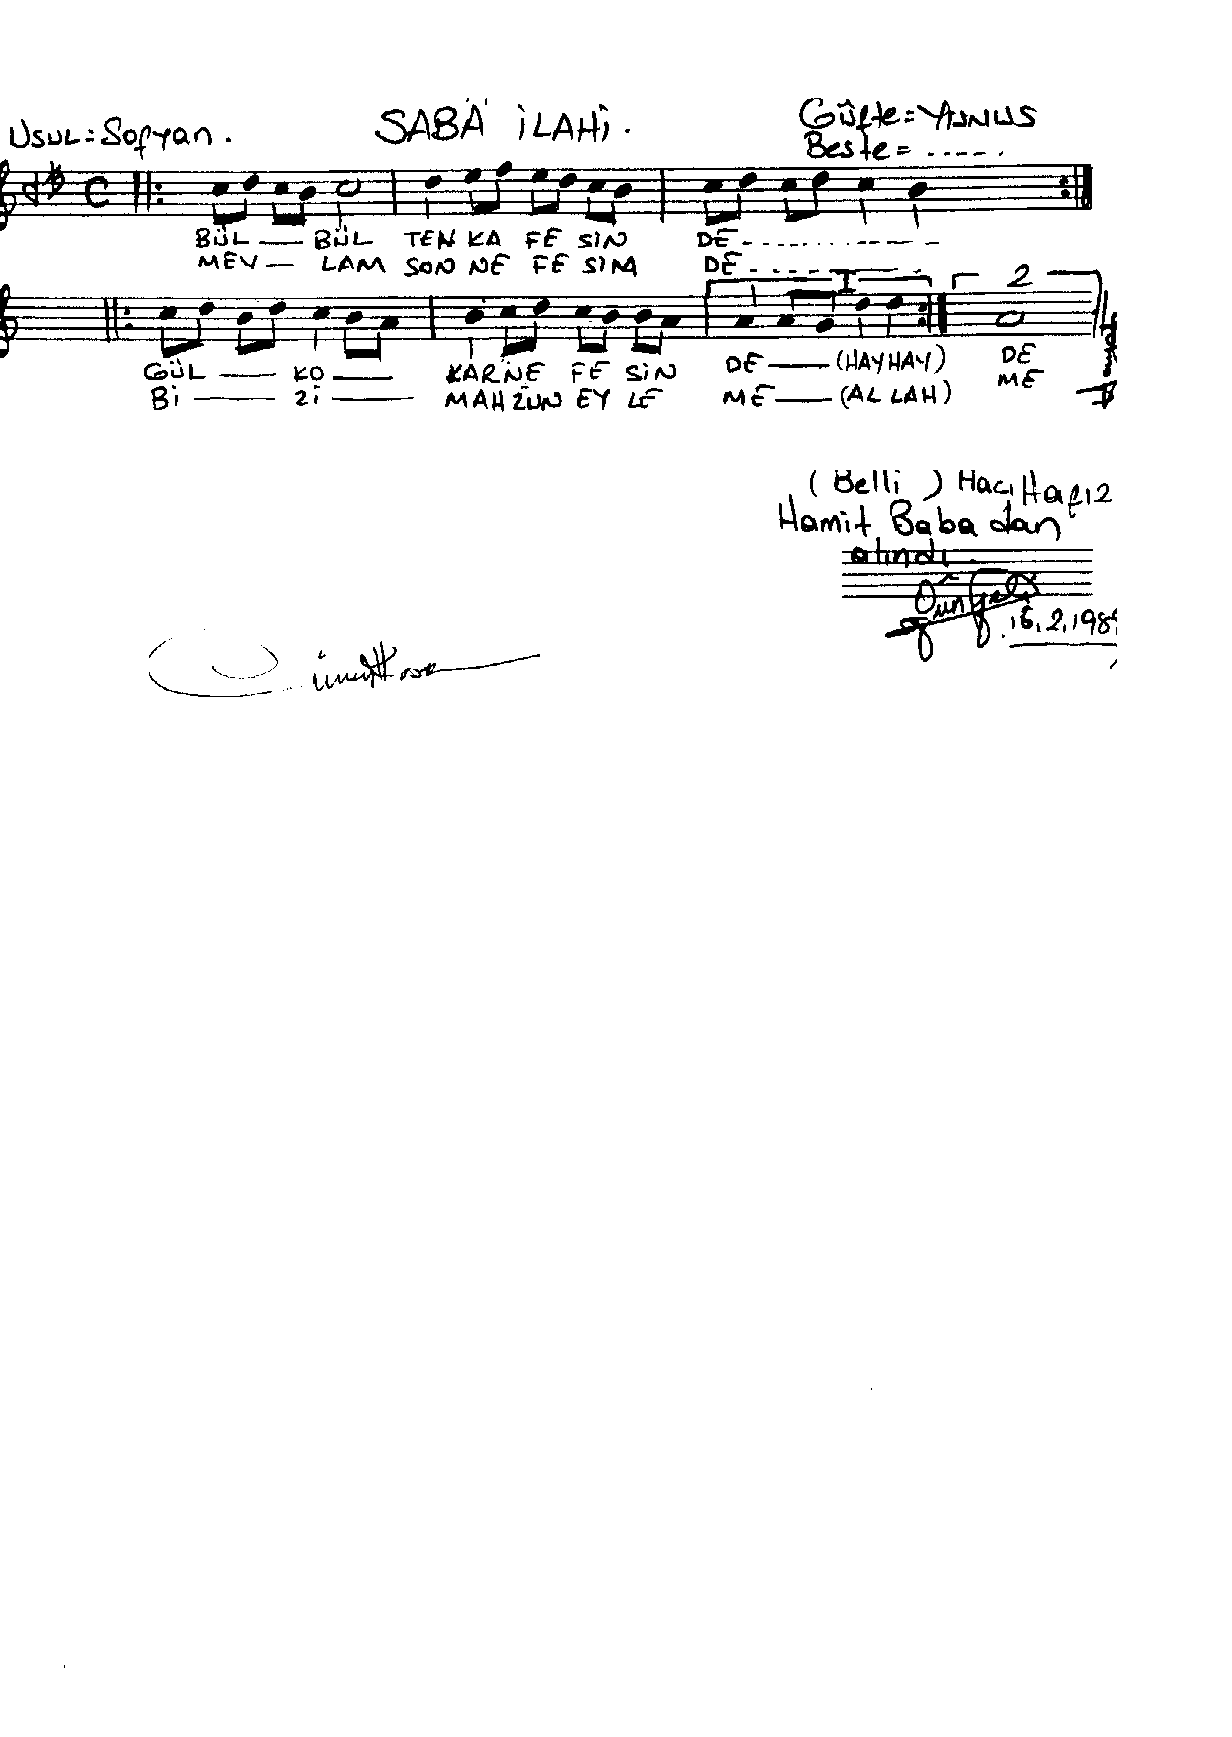 Usul = Sofyan. SABÂ İLAHİ. Güfte = YUNUS
Beste = .....
BÜL — BÜL TEN KA FE SİN DE
MEV — LAM SON NE FE SİM DE
1 2
GÜL — KO — KARİNE FE SİN DE — (HAYHAY) DE
Bİ — Zİ — MAHZUN EY LE ME — (ALLAH) ME
(Belli) Hacı Hafız
Hamit Baba dan
alındı.
16.2.198